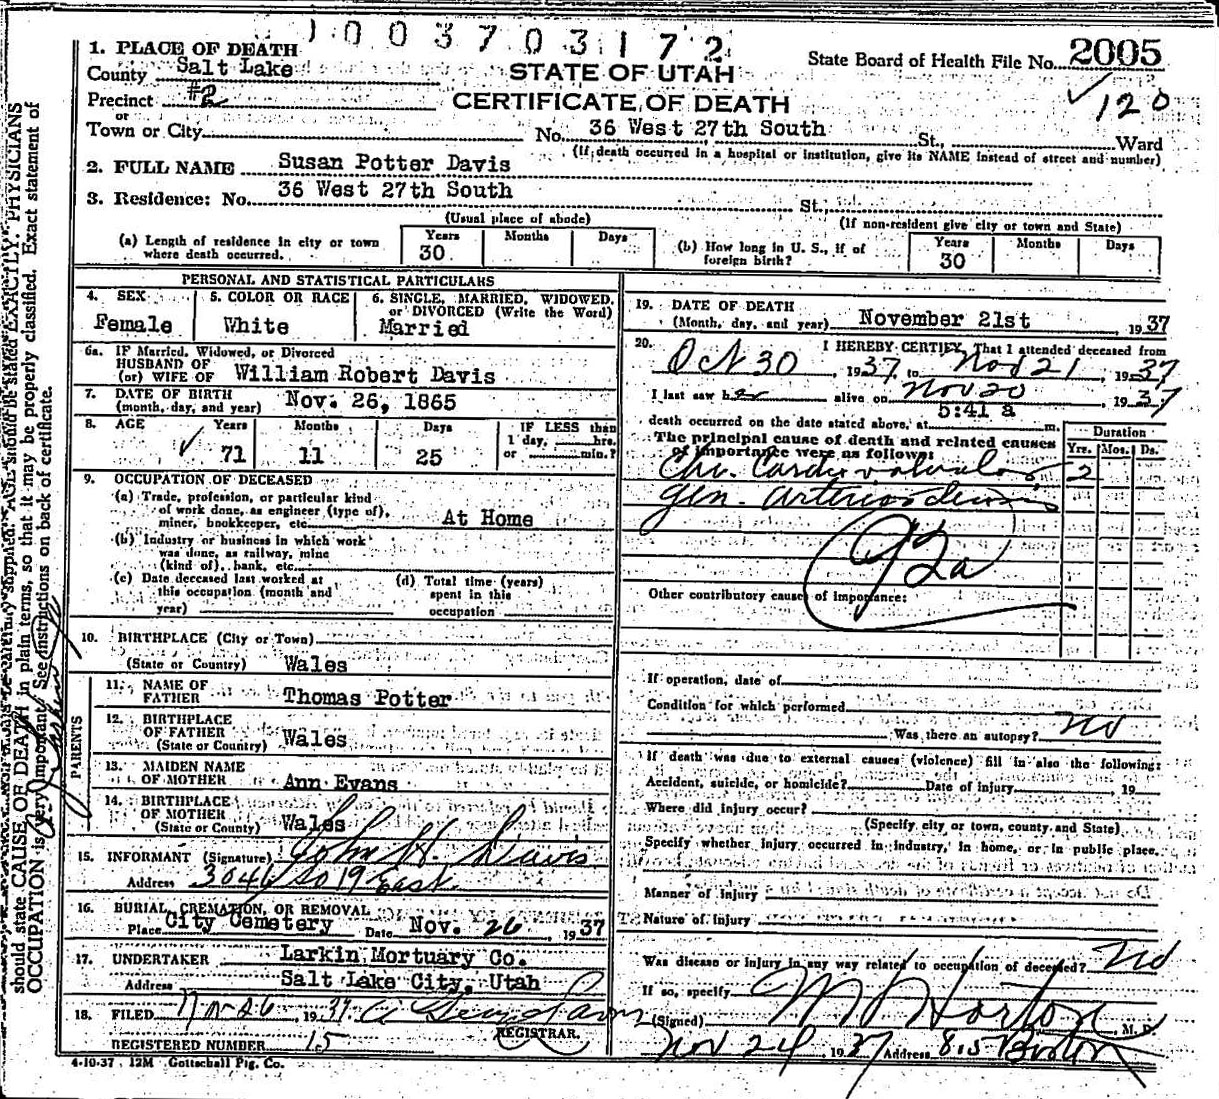 1003703172
1. PLACE OF DEATH
County Salt Lake
STATE OF UTAH
State Board of Health File No. 2005
Precinct #2
CERTIFICATE OF DEATH
120
or
Town or City No. 36 West 27th South St., Ward
(If death occurred in a hospital or institution, give its NAME instead of street and number)
2. FULL NAME Susan Potter Davis
3. Residence: No. 36 West 27th South St.
(Usual place of abode) (If non-resident give city or town and State)
(a) Length of residence in city or town where death occurred. Years 30 Months Days
(b) How long in U. S., if of foreign birth? Years 30 Months Days
PERSONAL AND STATISTICAL PARTICULARS
4. SEX Female
5. COLOR OR RACE White
6. SINGLE, MARRIED, WIDOWED, or DIVORCED (Write the Word) Married
6a. IF Married, Widowed, or Divorced
HUSBAND OF
(or) WIFE OF William Robert Davis
7. DATE OF BIRTH
(month, day, and year) Nov. 26, 1865
8. AGE Years 71 Months 11 Days 25 IF LESS than 1 day, hrs. or min.?
9. OCCUPATION OF DECEASED
(a) Trade, profession, or particular kind
of work done, as engineer (type of),
miner, bookkeeper, etc. At Home
(b) Industry or business in which work
was done, as railway, mine
(kind of), bank, etc.
(c) Date deceased last worked at
this occupation (month and
year)
(d) Total time (years)
spent in this
occupation
10. BIRTHPLACE (City or Town)
(State or Country) Wales
PARENTS
11. NAME OF
FATHER Thomas Potter
12. BIRTHPLACE
OF FATHER
(State or Country) Wales
13. MAIDEN NAME
OF MOTHER Ann Evans
14. BIRTHPLACE
OF MOTHER
(State or County) Wales
15. INFORMANT (Signature) John H. Davis
Address 3046 So 19 East.
16. BURIAL, CREMATION, OR REMOVAL
Place City Cemetery Date Nov. 26 1937
17. UNDERTAKER Larkin Mortuary Co.
Address Salt Lake City, Utah
18. FILED Nov 26, 1937
REGISTRAR.
REGISTERED NUMBER 15
4-10-37 12M Gottschall Ptg. Co.
19. DATE OF DEATH
(Month, day, and year) November 21st 1937
20. I HEREBY CERTIFY, That I attended deceased from
Oct 30, 1937, to Nov 21, 1937
I last saw her alive on Nov 20, 1937
death occurred on the date stated above, at 5:41 a m.
The principal cause of death and related causes
of importance were as follows:
Duration
Yrs. Mos. Ds.
Chr. Cardio valvular 2
gen. arteriosclerosis
92a
Other contributory causes of importance:
If operation, date of
Condition for which performed
Was there an autopsy? No
If death was due to external causes (violence) fill in also the following:
Accident, suicide, or homicide? Date of injury, 19
Where did injury occur?
(Specify city or town, county and State)
Specify whether injury occurred in industry, in home, or in public place.
Manner of injury
Nature of Injury
Was disease or injury in any way related to occupation of deceased? No
If so, specify
(Signed) Horton, M. D.
Nov 24, 1937 Address
AGE should be stated EXACTLY. PHYSICIANS
should state CAUSE OF DEATH in plain terms, so that it may be properly classified. Exact statement of
OCCUPATION is very important. See instructions on back of certificate.